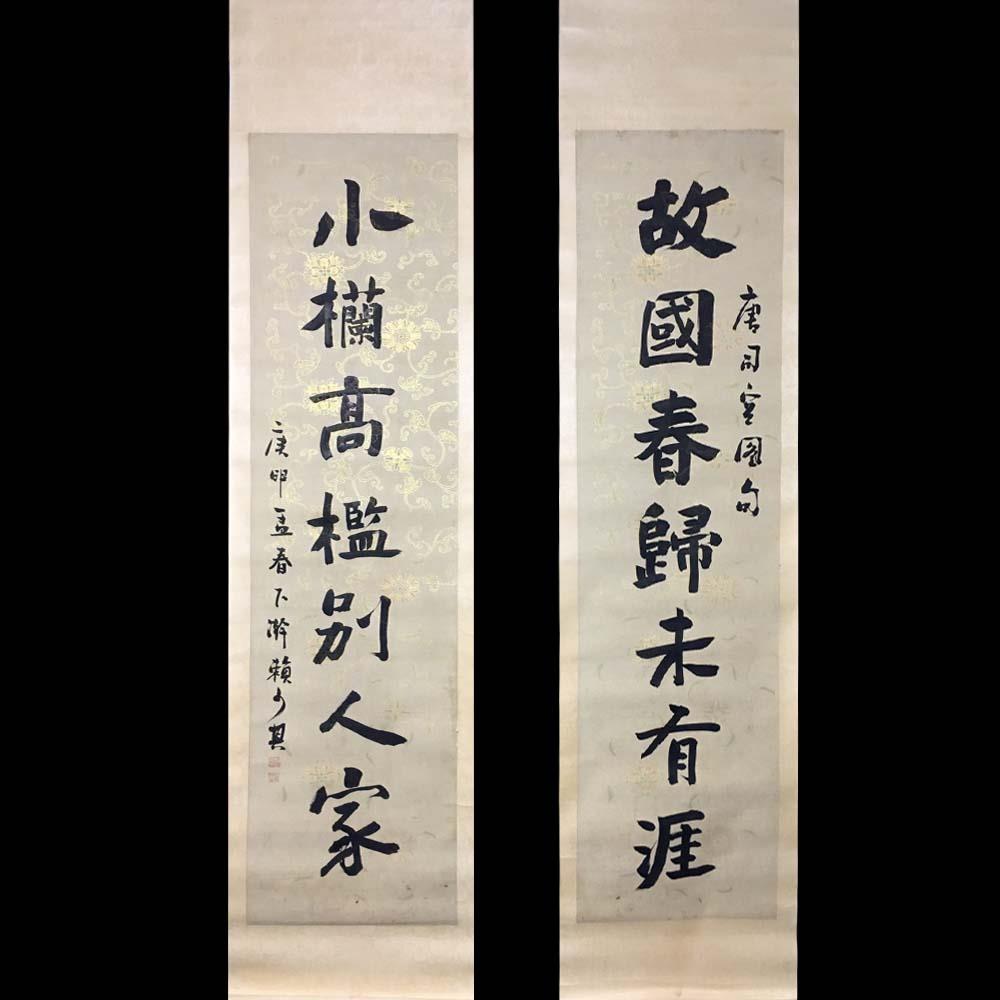 唐司空图句
故國春歸未有涯
小欄高檻別人家
庚申孟春下澣賴少其